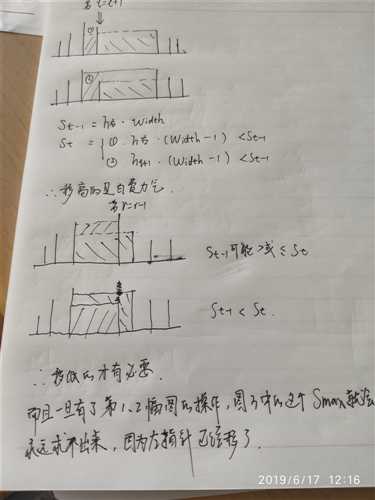 若 l=l+1
①
②
St-1 = h右 · Width
St = ① h右 · (Width-1) < St-1
② hl+1 · (Width-1) < St-1
∴移高的是白费力气.
若 r=r-1
St-1 可能 > 或 ≤ St
St-1 < St.
∴ 移低的才有必要.
而且一旦有了第1、2幅图的操作, 图3中的这个 Smax 就
永远求不出来, 因为左指针已经移了.
2019/6/17 12:16